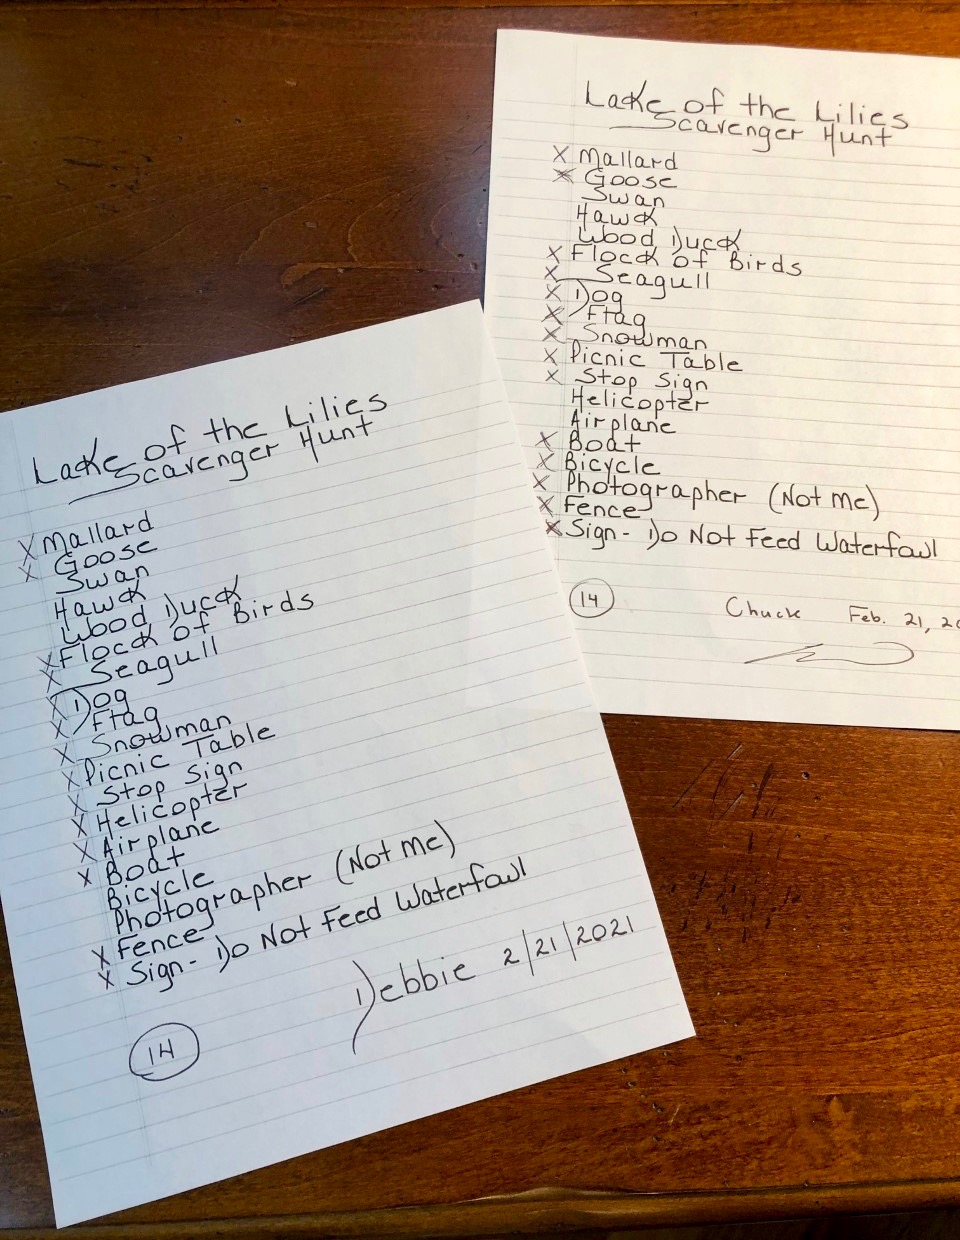 Lake of the Lilies
Scavenger Hunt
X Mallard
X Goose
Swan
Hawk
Wood Duck
X Flock of Birds
X Seagull
X Dog
X Flag
X Snowman
X Picnic Table
X Stop Sign
X Helicopter
X Airplane
X Boat
Bicycle
Photographer (Not Me)
X Fence
X Sign - Do Not Feed Waterfowl
Debbie 2/21/2021
14
Lake of the Lilies
Scavenger Hunt
X Mallard
X Goose
Swan
Hawk
Wood Duck
X Flock of Birds
X Seagull
X Dog
X Flag
X Snowman
X Picnic Table
X Stop Sign
Helicopter
Airplane
X Boat
X Bicycle
X Photographer (Not Me)
X Fence
X Sign - Do Not Feed Waterfowl
14 Chuck Feb. 21, 20